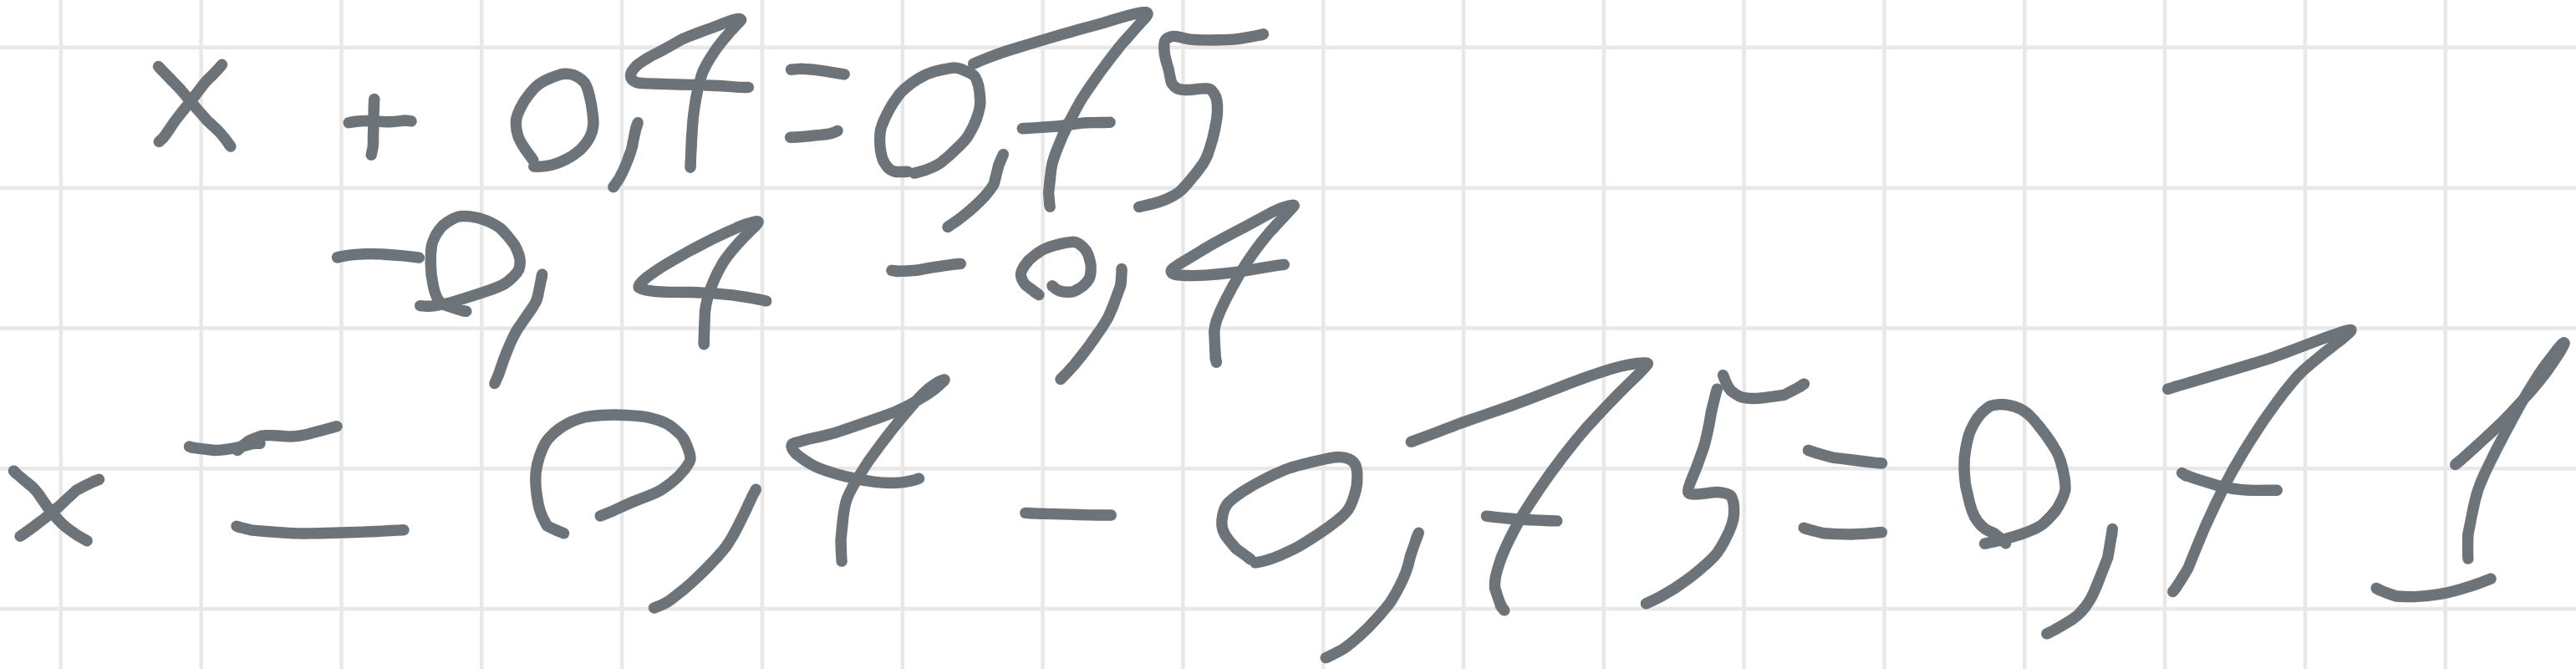 x + 0,4 = 0,75
-0,4 -0,4
x = 0,4 - 0,75 = 0,71